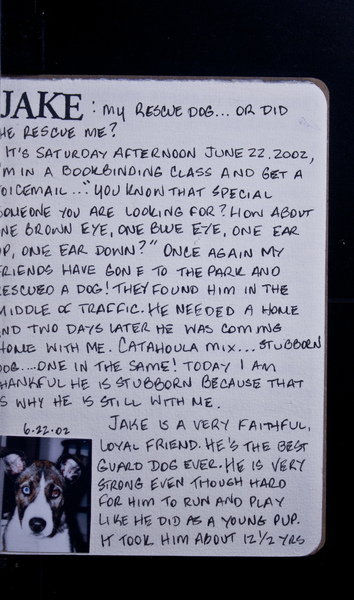 JAKE: MY RESCUE DOG... OR DID
HE RESCUE ME?
IT'S SATURDAY AFTERNOON JUNE 22.2002,
I'M IN A BOOKBINDING CLASS AND GET A
VOICEMAIL..."YOU KNOW THAT SPECIAL
SOMEONE YOU ARE LOOKING FOR? HOW ABOUT
ONE BROWN EYE, ONE BLUE EYE, ONE EAR
UP, ONE EAR DOWN?" ONCE AGAIN MY
FRIENDS HAVE GONE TO THE PARK AND
RESCUED A DOG! THEY FOUND HIM IN THE
MIDDLE OF TRAFFIC. HE NEEDED A HOME
AND TWO DAYS LATER HE WAS COMING
HOME WITH ME. CATAHOULA MIX... STUBBORN
DOG....ONE IN THE SAME! TODAY I AM
THANKFUL HE IS STUBBORN BECAUSE THAT
IS WHY HE IS STILL WITH ME.
JAKE IS A VERY FAITHFUL,
6.22.02
LOYAL FRIEND. HE'S THE BEST
GUARD DOG EVER. HE IS VERY
STRONG EVEN THOUGH HARD
FOR HIM TO RUN AND PLAY
LIKE HE DID AS A YOUNG PUP.
IT TOOK HIM ABOUT 12 1/2 YRS